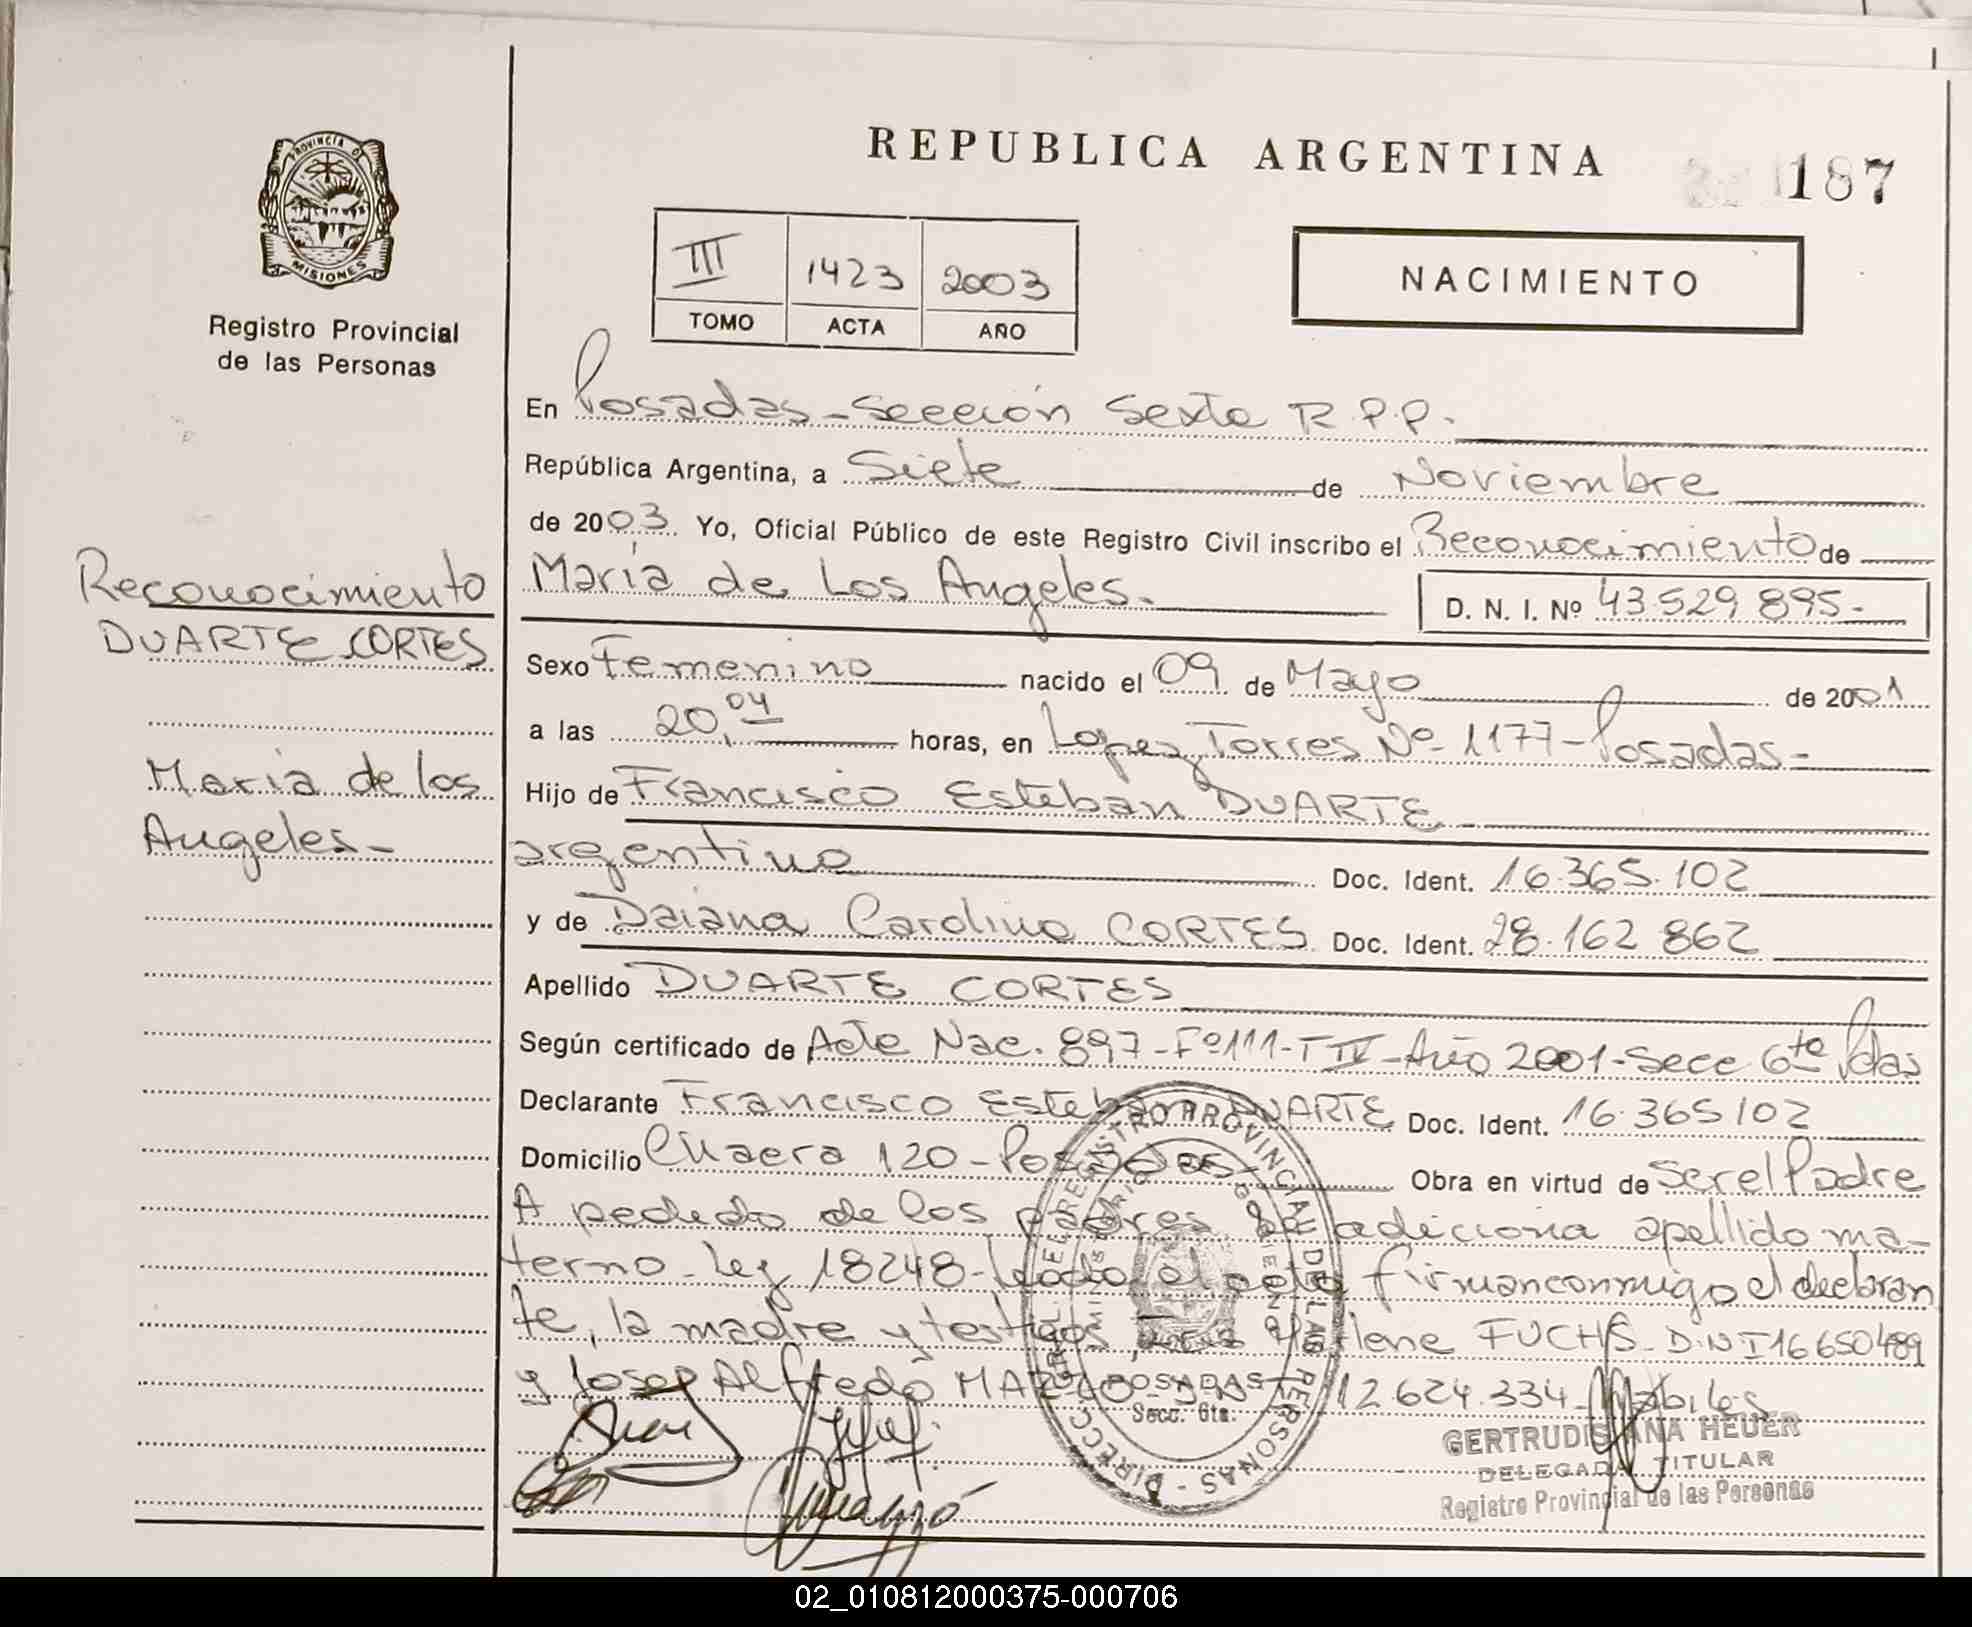 REPUBLICA ARGENTINA
187
PROVINCIA DE
MISIONES
Registro Provincial
de las Personas
III 1423 2003
TOMO ACTA AÑO
NACIMIENTO
En Posadas - Sección Sexta R.P.P.
República Argentina, a Siete de Noviembre
de 2003. Yo, Oficial Público de este Registro Civil inscribo el Reconocimiento de
María de Los Angeles.- D. N. I. Nº 43.529.895.-
Reconocimiento
DUARTE CORTES
María de los
Angeles -
Sexo Femenino nacido el 09 de Mayo de 2001
a las 20,04 horas, en Lopez Torres Nº 1177 - Posadas -
Hijo de Francisco Esteban DUARTE
argentino Doc. Ident. 16.365.102
y de Daiana Carolina CORTES Doc. Ident. 28.162.862
Apellido DUARTE CORTES
Según certificado de Acta Nac. 897 - Fº 111 - T IV - Año 2001 - Secc 6ta Pdas
Declarante Francisco Esteban DUARTE Doc. Ident. 16.365102
Domicilio 120 - Posadas - Obra en virtud de Ser el Padre
A pedido de los padres se adiciona apellido ma-
terno - Ley 18248 - Leída el acta firman conmigo el declaran
te, la madre y testigos FUCHS - D.N.I 16650489
y José Alfredo 12.624.334 - Hábiles
DIRECC. GRAL. DEL REGISTRO PROVINCIAL DE LAS PERSONAS
MINISTERIO DE GOBIERNO
POSADAS
Secc. 6ta.
GERTRUDIS ANA HEUER
DELEGADA TITULAR
Registro Provincial de las Personas
02_010812000375-000706